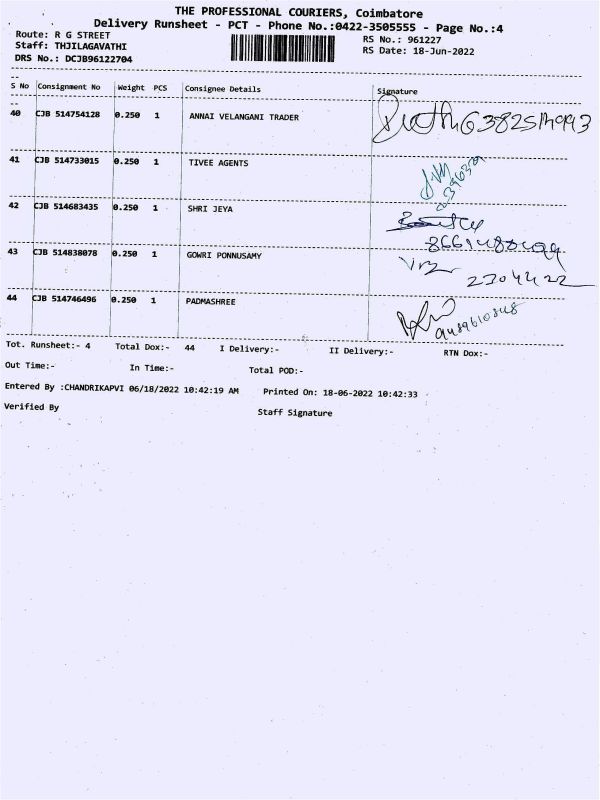 THE PROFESSIONAL COURIERS, Coimbatore
Delivery Runsheet - PCT - Phone No.:0422-3505555 - Page No.:4
Route: R G STREET RS No.: 961227
Staff: THJILAGAVATHI RS Date: 18-Jun-2022
DRS No.: DCJB96122704
S No Consignment No Weight PCS Consignee Details Signature
40 CJB 514754128 0.250 1 ANNAI VELANGANI TRADER
41 CJB 514733015 0.250 1 TIVEE AGENTS
42 CJB 514683435 0.250 1 SHRI JEYA
43 CJB 514838078 0.250 1 GOWRI PONNUSAMY
2304422
44 CJB 514746496 0.250 1 PADMASHREE
Tot. Runsheet:- 4 Total Dox:- 44 I Delivery:- II Delivery:- RTN Dox:-
Out Time:- In Time:- Total POD:-
Entered By :CHANDRIKAPVI 06/18/2022 10:42:19 AM Printed On: 18-06-2022 10:42:33
Verified By Staff Signature